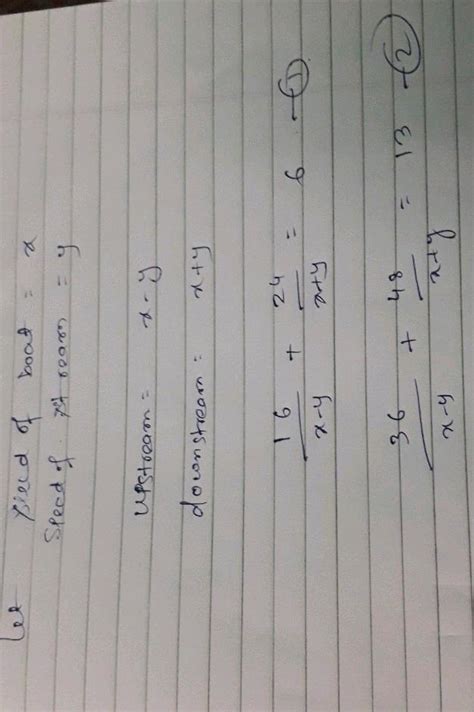 Let
speed of boat = x
Speed of stream = y
Upstream = x-y
downstream = x+y
16/x-y + 24/x+y = 6 -①
36/x-y + 48/x+y = 13 -②